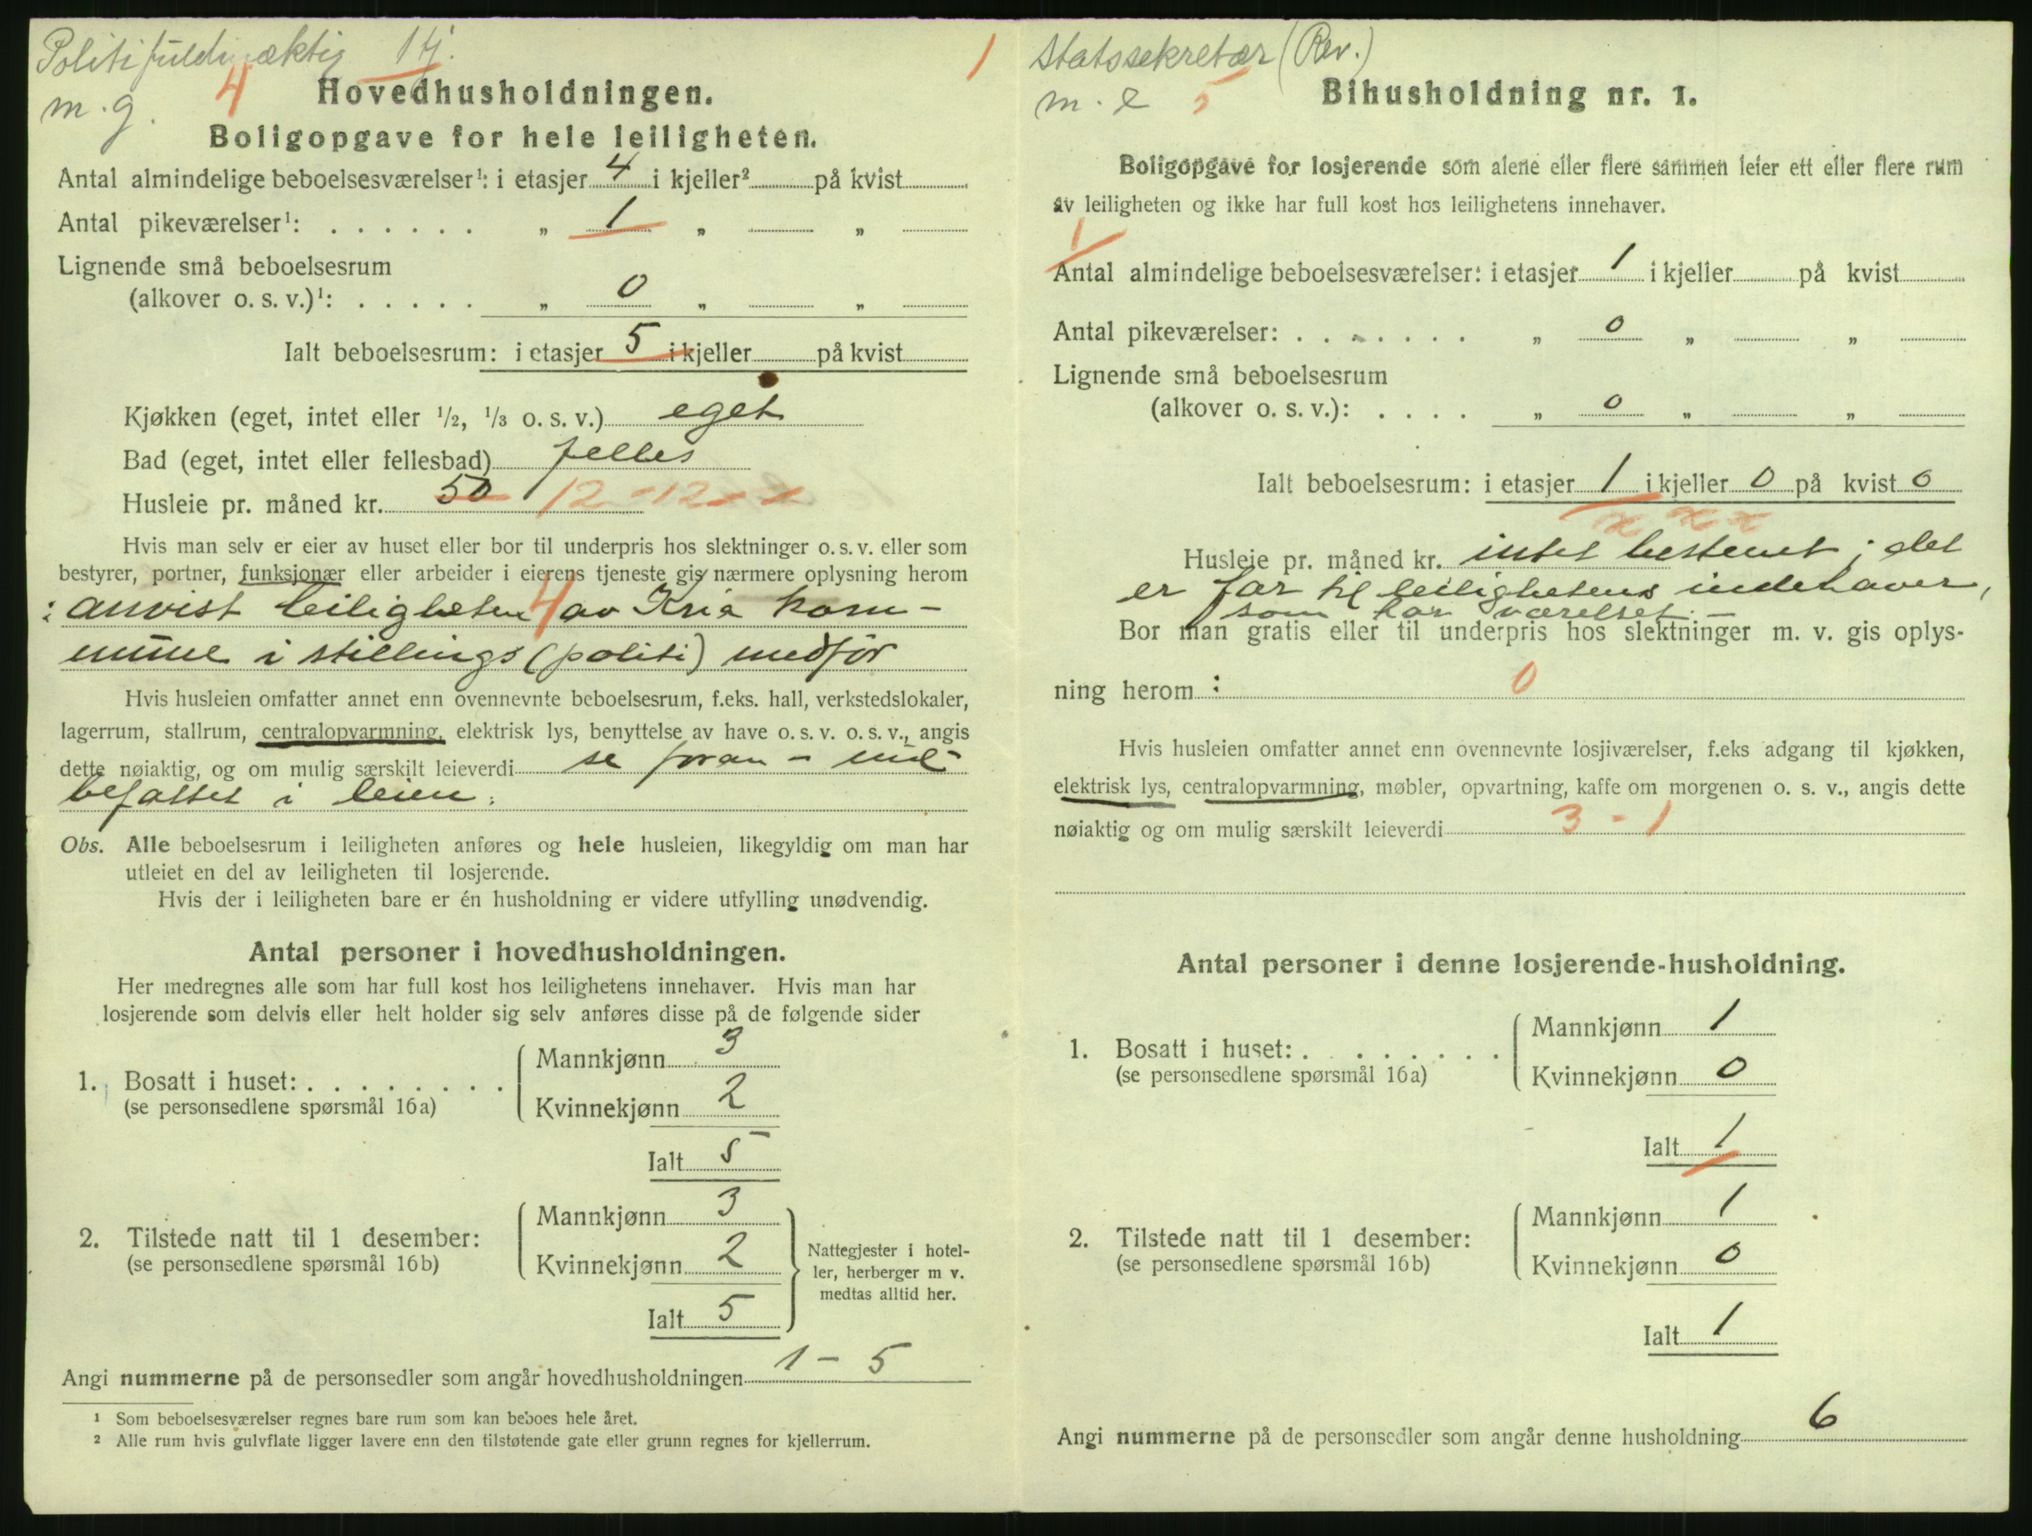 Politifuldmæktig 1 Kj.
m. g. 4
Hovedhusholdningen.
Boligopgave for hele leiligheten.
Antal almindelige beboelsesværelser¹: i etasjer 4 i kjeller² på kvist
Antal pikeværelser¹: . . . . . . „ 1 „ „
Lignende små beboelsesrum
(alkover o. s. v.)¹: . . . . . „ 0 „ „
Ialt beboelsesrum: i etasjer 5 i kjeller på kvist
Kjøkken (eget, intet eller 1/2, 1/3 o. s. v.) eget
Bad (eget, intet eller fellesbad) felles
Husleie pr. måned kr. 50 12 - 12 - x x
Hvis man selv er eier av huset eller bor til underpris hos slektninger o. s. v. eller som
bestyrer, portner, funksjonær eller arbeider i eierens tjeneste gis nærmere oplysning herom
: anvist leiligheten 4 av Kria kom-
mune i stillings (politi) medfør
Hvis husleien omfatter annet enn ovennevnte beboelsesrum, f.eks. hall, verkstedslokaler,
lagerrum, stallrum, centralopvarmning, elektrisk lys, benyttelse av have o. s. v. o. s. v., angis
dette nøiaktig, og om mulig særskilt leieverdi se foran - ind-
befattet i leien.
Obs. Alle beboelsesrum i leiligheten anføres og hele husleien, likegyldig om man har
utleiet en del av leiligheten til losjerende.
Hvis der i leiligheten bare er én husholdning er videre utfylling unødvendig.
Antal personer i hovedhusholdningen.
Her medregnes alle som har full kost hos leilighetens innehaver. Hvis man har
losjerende som delvis eller helt holder sig selv anføres disse på de følgende sider
Mannkjønn 3
1. Bosatt i huset: . . . . . . . .
(se personsedlene spørsmål 16a)
Kvinnekjønn 2
Ialt 5
Mannkjønn 3
2. Tilstede natt til 1 desember:
(se personsedlene spørsmål 16b)
Kvinnekjønn 2
Ialt 5
Nattegjester i hotel-
ler, herberger m v.
medtas alltid her.
Angi nummerne på de personsedler som angår hovedhusholdningen 1 - 5
¹ Som beboelsesværelser regnes bare rum som kan beboes hele året.
² Alle rum hvis gulvflate ligger lavere enn den tilstøtende gate eller grunn regnes for kjellerrum.
1
Statssekretær (Rev.)
m. e 5
Bihusholdning nr. 1.
Boligopgave for losjerende som alene eller flere sammen leier ett eller flere rum
av leiligheten og ikke har full kost hos leilighetens innehaver.
1
Antal almindelige beboelsesværelser: i etasjer 1 i kjeller på kvist
Antal pikeværelser: . . . . . . . „ 0 „ „
Lignende små beboelsesrum
(alkover o. s. v.): . . . . „ 0 „ „
Ialt beboelsesrum: i etasjer 1 i kjeller 0 på kvist 0
x x x
Husleie pr. måned kr. intet bestemt; det
er far til leilighetens indehaver,
som har værelset. -
Bor man gratis eller til underpris hos slektninger m. v. gis oplys-
ning herom : 0
Hvis husleien omfatter annet enn ovennevnte losjiværelser, f.eks adgang til kjøkken,
elektrisk lys, centralopvarmning, møbler, opvartning, kaffe om morgenen o. s. v., angis dette
nøiaktig og om mulig særskilt leieverdi 3 - 1
Antal personer i denne losjerende-husholdning.
Mannkjønn 1
1. Bosatt i huset: . . . . . . . .
(se personsedlene spørsmål 16a)
Kvinnekjønn 0
Ialt 1
Mannkjønn 1
2. Tilstede natt til 1 desember:
(se personsedlene spørsmål 16b)
Kvinnekjønn 0
Ialt 1
Angi nummerne på de personsedler som angår denne husholdning 6